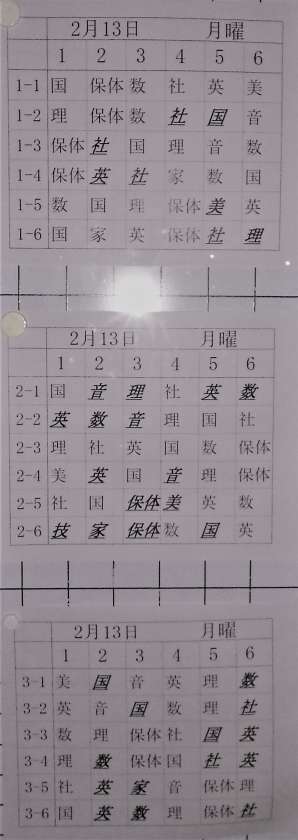 2月13日 月曜
1 2 3 4 5 6
1-1 国 保体 数 社 英 美
1-2 理 保体 数 社 国 音
1-3 保体 社 国 理 音 数
1-4 保体 英 社 家 数 国
1-5 数 国 理 保体 美 英
1-6 国 家 英 保体 社 理
2月13日 月曜
1 2 3 4 5 6
2-1 国 音 理 社 英 数
2-2 英 数 音 理 国 社
2-3 理 社 英 国 数 保体
2-4 美 英 国 音 理 保体
2-5 社 国 保体 美 英 数
2-6 技 家 保体 数 国 英
2月13日 月曜
1 2 3 4 5 6
3-1 美 国 音 英 理 数
3-2 英 音 国 数 理 社
3-3 数 理 保体 社 国 英
3-4 理 数 保体 国 社 英
3-5 社 英 家 音 保体 理
3-6 国 英 数 理 保体 社